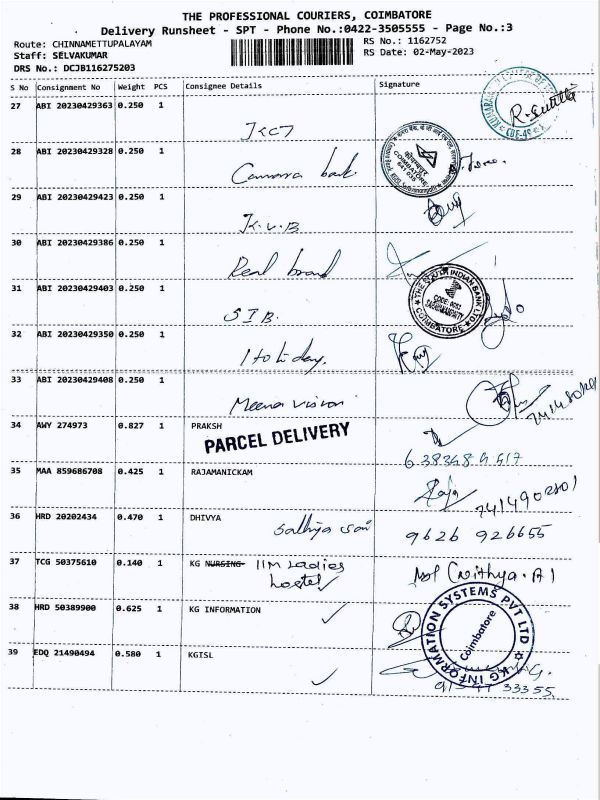 THE PROFESSIONAL COURIERS, COIMBATORE
Delivery Runsheet - SPT - Phone No.:0422-3505555 - Page No.:3
Route: CHINNAMETTUPALAYAM
Staff: SELVAKUMAR
DRS No.: DCJB116275203
RS No.: 1162752
RS Date: 02-May-2023
S No Consignment No Weight PCS Consignee Details Signature
27 ABI 20230429363 0.250 1
28 ABI 20230429328 0.250 1
bank
29 ABI 20230429423 0.250 1
K.V.B
30 ABI 20230429386 0.250 1
Real brand
31 ABI 20230429403 0.250 1
SIB.
THE SOUTH INDIAN BANK LTD.
COIMBATORE
32 ABI 20230429350 0.250 1
Holiday.
33 ABI 20230429408 0.250 1
Meena vision
34 AWY 274973 0.827 1 PRAKSH
PARCEL DELIVERY
35 MAA 859686708 0.425 1 RAJAMANICKAM
Raja
36 HRD 20202434 0.470 1 DHIVYA
9626 926655
37 TCG 50375610 0.140 1 KG NURSING IIM Ladies
hostel
38 HRD 50389900 0.625 1 KG INFORMATION
KG INFORMATION SYSTEMS PVT LTD
Coimbatore
39 EDQ 21490494 0.580 1 KGISL